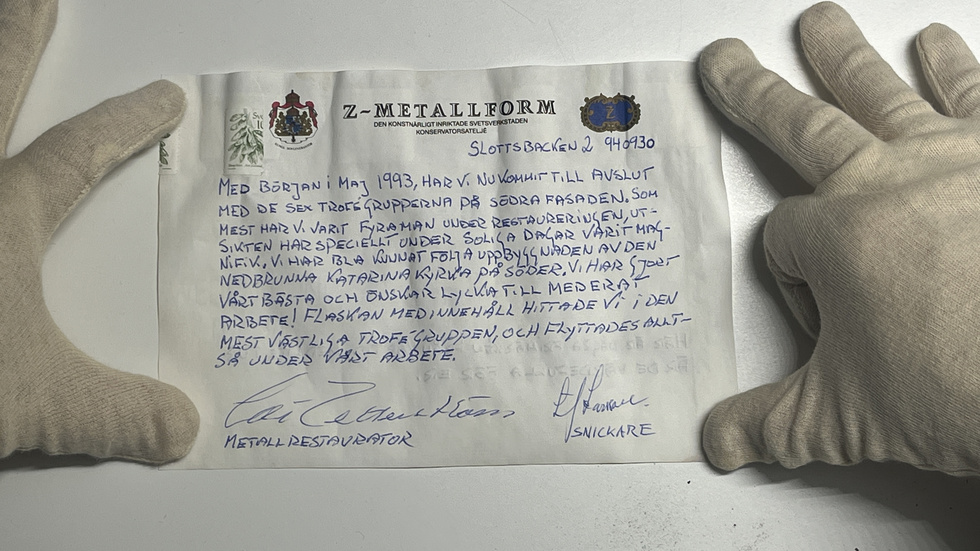 Z-METALLFORM
DEN KONSTNÄRLIGT INRIKTADE SVETSVERKSTADEN
KONSERVATORSATELJÉ
SLOTTSBACKEN 2 940930
MED BÖRJAN I MAJ 1993, HAR VI NU KOMMIT TILL AVSLUT
MED DE SEX TROFÉGRUPPERNA PÅ SÖDRA FASADEN. SOM
MEST HAR VI VARIT FYRA MAN UNDER RESTAURERINGEN, UT-
SIKTEN HAR SPECIELLT UNDER SOLIGA DAGAR VARIT MAG-
NIFIK, VI HAR BLA KUNNAT FÖLJA UPPBYGGNADEN AV DEN
NEDBRUNNA KATARINA KYRKA PÅ SÖDER. VI HAR GJORT
VÅRT BÄSTA OCH ÖNSKAR LYCKA TILL MED ERAT
ARBETE! FLASKAN MED INNEHÅLL HITTADE VI I DEN
MEST VÄSTLIGA TROFÉGRUPPEN, OCH FLYTTADES ALLT-
SÅ UNDER VÅRT ARBETE.
METALLRESTAURATOR
SNICKARE